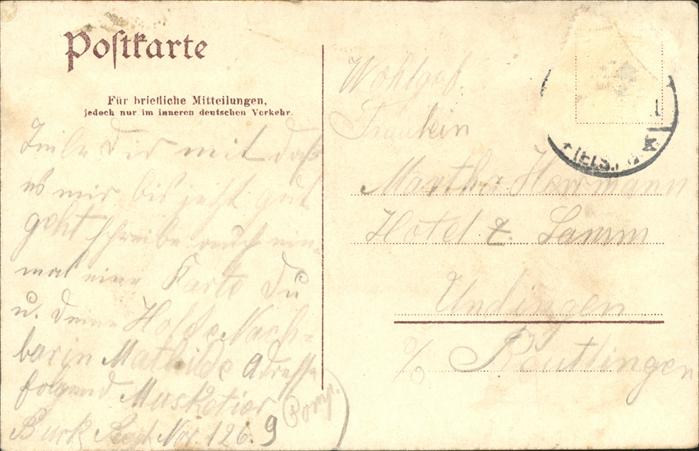 Postkarte
Für briefliche Mitteilungen,
jedoch nur im inneren deutschen Verkehr.
Teile Dir mit daß
es mir bis jetzt gut
geht schreibe auch ein-
mal eine Karte Du
u. deine Holde Nach-
barin Mathilde Adresse
folgend Musketier
Burk Regt. Nro. 126. 9
Comp.
Wohlgeb.
Fräulein
Martha
Hotel z. Lamm
Undingen
o/o Reutlingen
(ELS.)